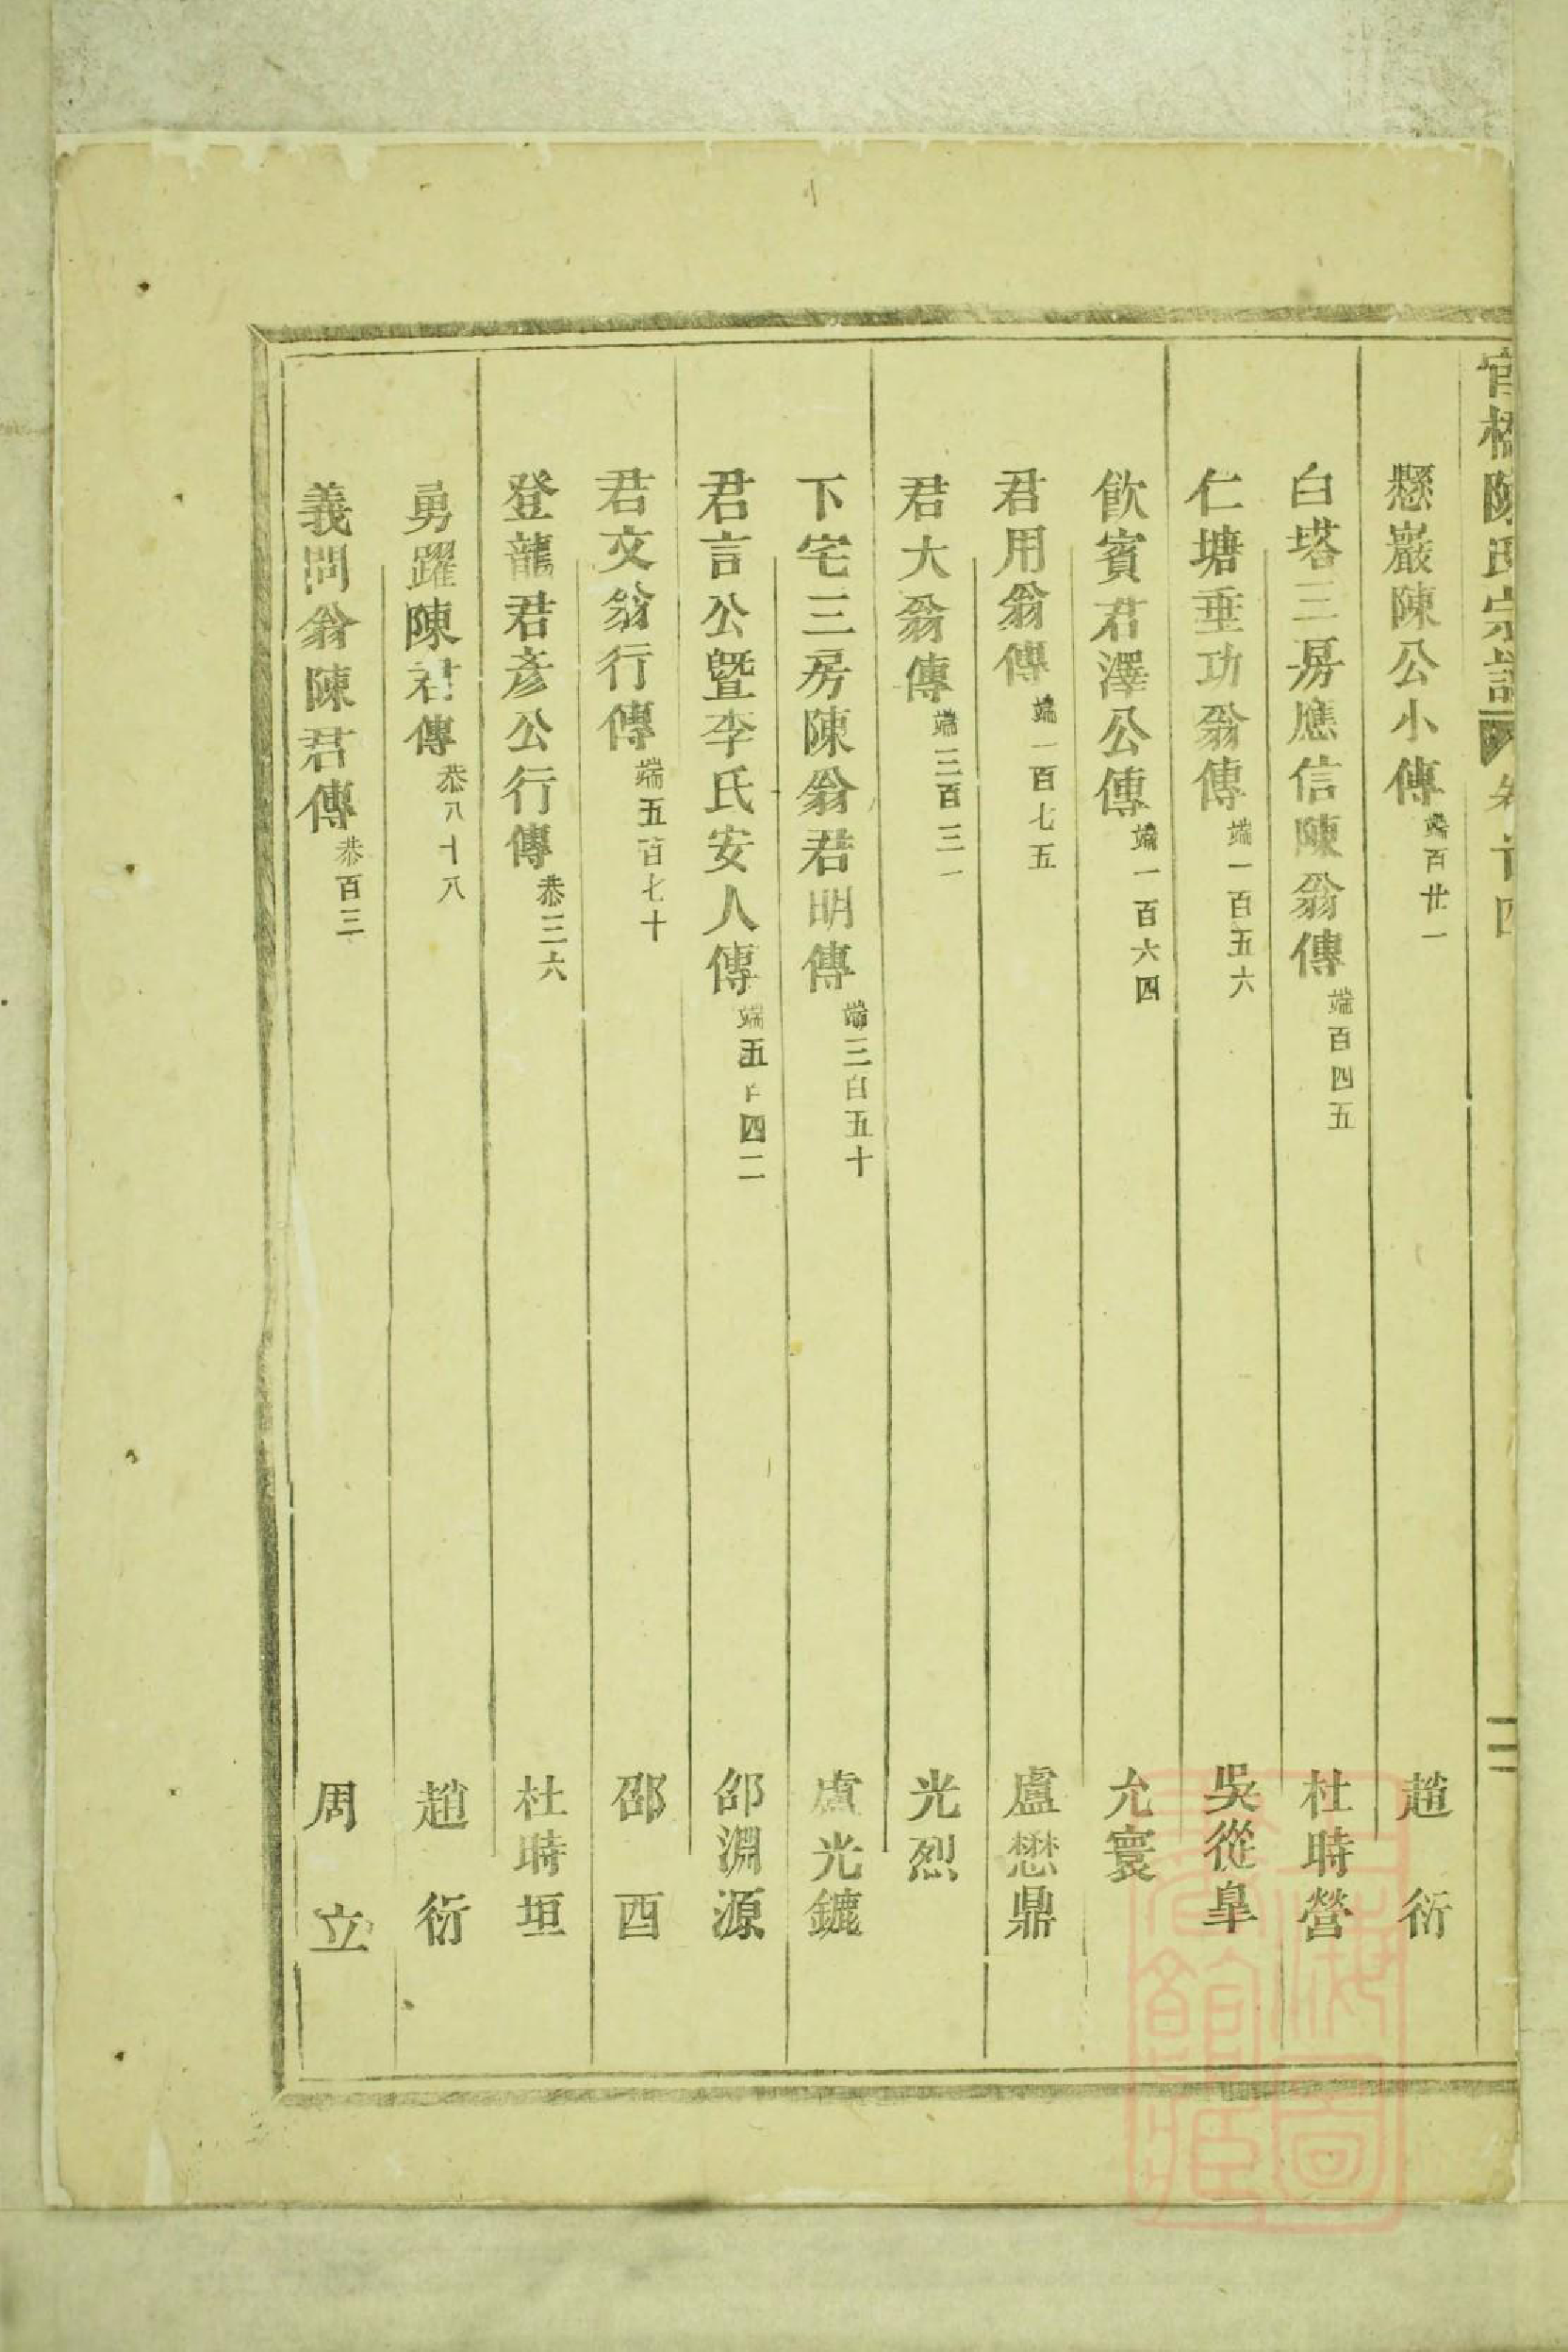 官橋陳氏宗譜 卷首四 二
懸巖陳公小傳 端百廿一 趙衍
白塔三房應信陳翁傳 端百四五 杜時營
仁塘垂功翁傳 端一百五六 吳從阜
飲賓君澤公傳 端一百六四 允寰
君用翁傳 端一百七五 盧懋鼎
君大翁傳 端三百三一 光烈
下宅三房陳翁君明傳 端三百五十 盧光鑣
君言公暨李氏安人傳 端五百四二 邵淵源
君文翁行傳 端五百七十 邵酉
登龍君彥公行傳 恭三六 杜時垣
勇躍陳君傳 恭八十八 趙衍
義問翁陳君傳 恭百三 周立